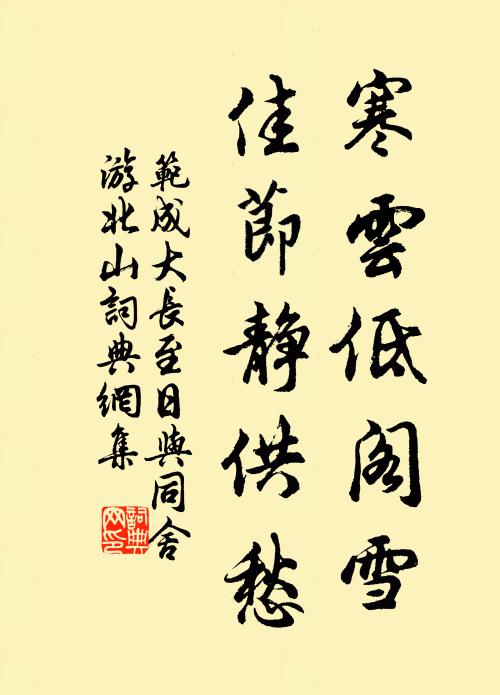 寒雲低閣雪
佳節靜供愁
範成大長至日與同舍
游北山詞典網集
詞典網印